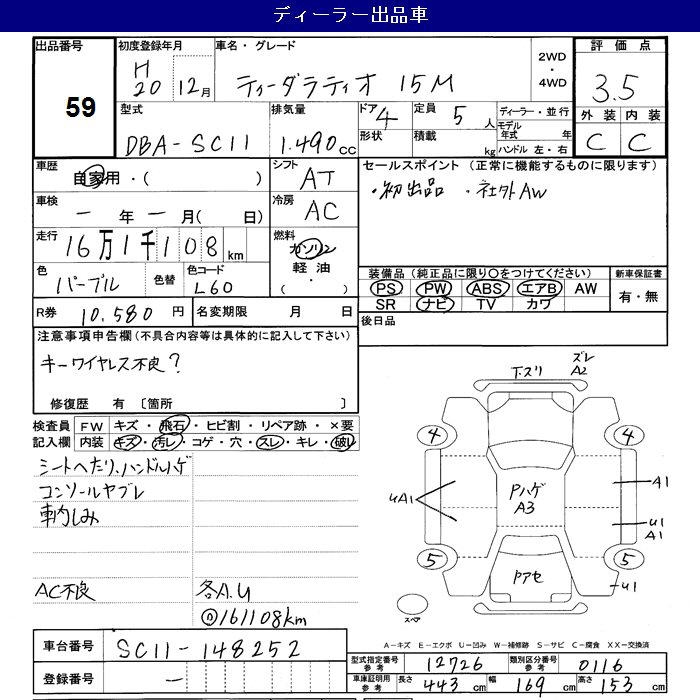 ディーラー出品車
出品番号 59
初度登録年月 H20 12月
車名・グレード ティーダラティオ 15M
2WD・4WD
評価点 3.5
外装 内装
C C
型式 DBA-SC11
排気量 1.490cc
ドア 4
形状
定員 5人
積載 kg
ディーラー・並行
モデル年式 年
ハンドル 左・右
車歴 自家用・( )
シフト AT
車検 ー年ー月( 日)
冷房 AC
セールスポイント (正常に機能するものに限ります)
・初出品 ・社外AW
走行 16万1千108km
燃料 ガソリン 軽油・( )
色 パープル
色替
色コード L60
装備品(純正品に限り〇をつけてください)
PS PW ABS エアB AW
SR ナビ TV カワ
新車保証書
有・無
R券 10.580円
名変期限 月 日
後日品
注意事項申告欄(不具合内容等は具体的に記入して下さい)
キーワイヤレス不良?
修復歴 有 〔箇所 〕
検査員記入欄
FW キズ・飛石・ヒビ割・リペア跡・×要
内装 キズ・汚レ・コゲ・穴・スレ・キレ・破レ
シートへたり、ハンドルハゲ
コンソールヤブレ
車内しみ
AC不良
各A.U
Ⓓ161108km
下スリ
ズレ
A2
4 4
UA1
Pハゲ
A3
A1
U1
A1
5 5
Pアセ
U1
スペア
A-キズ E-エクボ U-凹み W-補修跡 S-サビ C-腐食 XX-交換済
車台番号 SC11-148252
登録番号 ー
型式指定番号 参考 12726
類別区分番号 参考 0116
車庫証明用 参考 長さ 443cm 幅 169cm 高さ 153cm